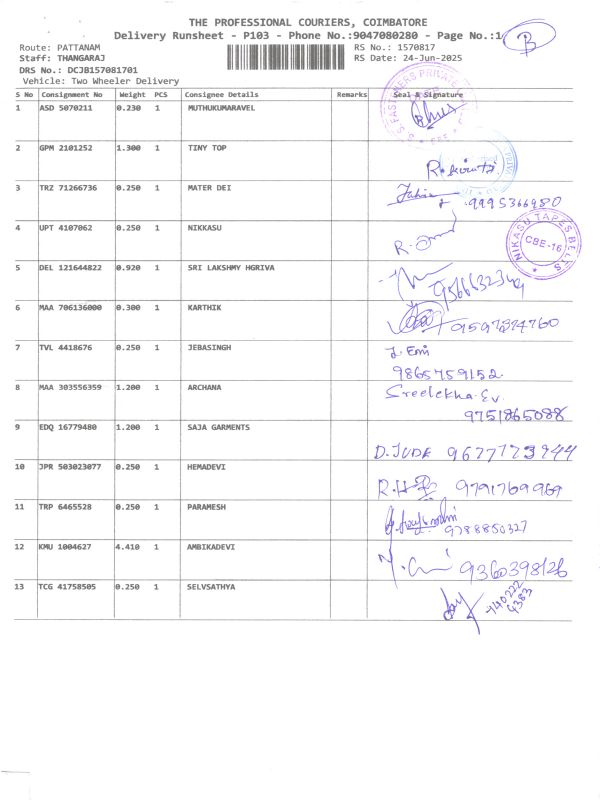 THE PROFESSIONAL COURIERS, COIMBATORE
Delivery Runsheet - P103 - Phone No.:9047080280 - Page No.:1 B
Route: PATTANAM RS No.: 1570817
Staff: THANGARAJ RS Date: 24-Jun-2025
DRS No.: DCJB157081701
Vehicle: Two Wheeler Delivery
S No Consignment No Weight PCS Consignee Details Remarks Seal & Signature
1 ASD 5070211 0.230 1 MUTHUKUMARAVEL
2 GPM 2101252 1.300 1 TINY TOP
3 TRZ 71266736 0.250 1 MATER DEI 9995366980
4 UPT 4107062 0.250 1 NIKKASU NIKASU TAPES BELTS CBE-16
5 DEL 121644822 0.920 1 SRI LAKSHMY HGRIVA
6 MAA 706136000 0.300 1 KARTHIK
7 TVL 4418676 0.250 1 JEBASINGH
9865759152
8 MAA 303556359 1.200 1 ARCHANA Sreelekha.Ev.
9751865088
9 EDQ 16779480 1.200 1 SAJA GARMENTS D.JUDE
10 JPR 503023077 0.250 1 HEMADEVI 9791769969
11 TRP 6465528 0.250 1 PARAMESH
9788850327
12 KMU 1004627 4.410 1 AMBIKADEVI 9360398126
13 TCG 41758505 0.250 1 SELVSATHYA